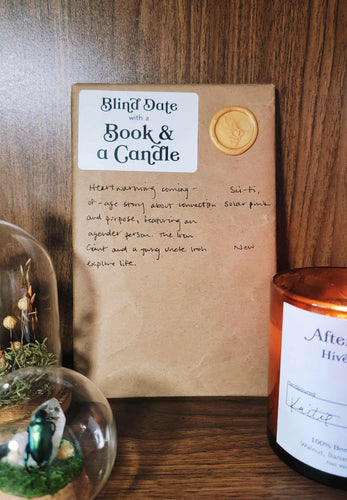 Blind Date
with a
Book &
a Candle
Heartwarming coming-
of-age story about connection
and purpose, featuring an
agender person. The Iron
Giant and a young uncle Iroh
explore life.
Sci-fi,
solar punk
New
After
Hive
100% Bee